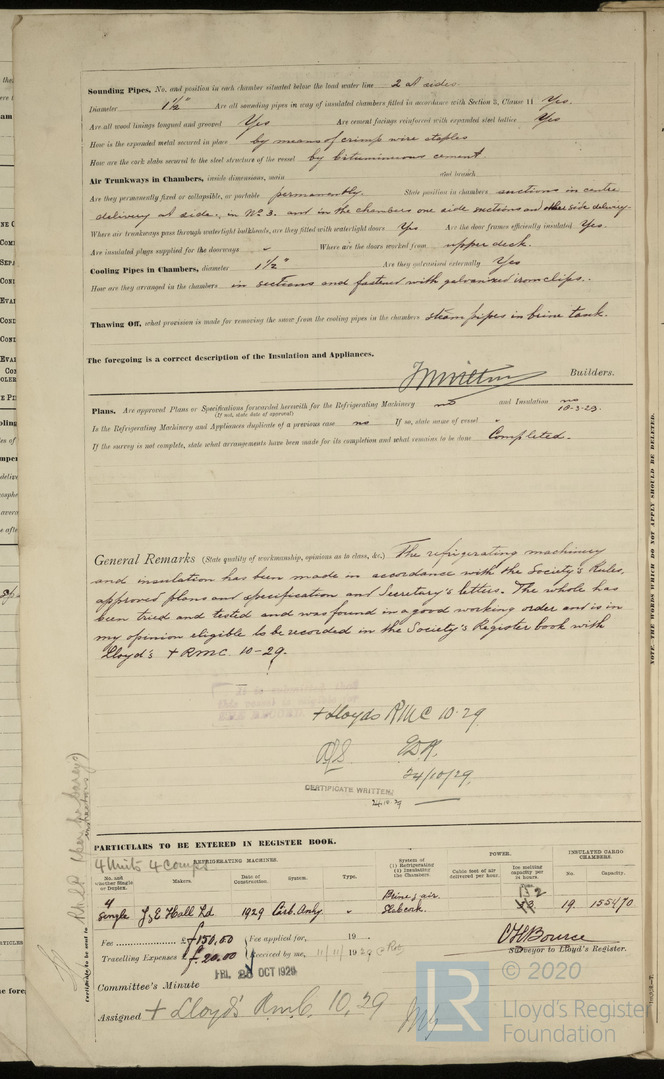 Sounding Pipes, No. and position in each chamber situated below the load water line 2 at sides.
Diameter 1½" Are all sounding pipes in way of insulated chambers fitted in accordance with Section 3, Clause 11 Yes.
Are all wood linings tongued and grooved Yes Are cement facings reinforced with expanded steel lattice Yes
How is the expanded metal secured in place by means of crimp wire staples
How are the cork slabs secured to the steel structure of the vessel by bituminous cement
Air Trunkways in Chambers, inside dimensions, main and branch
Are they permanently fixed or collapsible, or portable permanently. State position in chambers suctions in centre
delivery at side, in No 3. and in the chambers one side suctions and other side delivery.
Where air trunkways pass through watertight bulkheads, are they fitted with watertight doors Yes Are the door frames efficiently insulated Yes.
Are insulated plugs supplied for the doorways " Where are the doors worked from upper deck.
Cooling Pipes in Chambers, diameter 1½" Are they galvanised externally Yes
How are they arranged in the chambers in sections and fastened with galvanized iron clips.
Thawing Off, what provision is made for removing the snow from the cooling pipes in the chambers steam pipes in brine tank.
The foregoing is a correct description of the Insulation and Appliances.
Builders.
Plans. Are approved Plans or Specifications forwarded herewith for the Refrigerating Machinery no and Insulation no
(If not, state date of approval) 10-3-29.
Is the Refrigerating Machinery and Appliances duplicate of a previous case no If so, state name of vessel "
If the survey is not complete, state what arrangements have been made for its completion and what remains to be done Completed.
General Remarks (State quality of workmanship, opinions as to class, &c.) The refrigerating machinery
and insulation has been made in accordance with the Society's Rules,
approved plans and specification and Secretary's letters. The whole has
been tried and tested and was found in a good working order and is in
my opinion eligible to be recorded in the Society's Register book with
Lloyd's + RMC. 10-29.
+ Lloyds RMC 10.29
24/10/29.
CERTIFICATE WRITTEN
24.10.29
PARTICULARS TO BE ENTERED IN REGISTER BOOK.
4 Units 4 Comps
REFRIGERATING MACHINES. POWER. INSULATED CARGO CHAMBERS.
No. and whether Single or Duplex. Makers. Date of Construction. System. Type. System of (1) Refrigerating (2) Insulating the Chambers. Cubic feet of air delivered per hour. Ice melting capacity per 24 hours. Tons. No. Capacity.
4 Single J & E Hall Ld 1929 Carb. Anhy. " Brine & air. Slabcork. 19 155470
Fee £150.00 Fee applied for, 19
Travelling Expenses £ 20.00 Received by me, 11/11/1929
FRI. OCT 1929
Surveyor to Lloyd's Register.
Committee's Minute
Assigned + Lloyd's R.M.C. 10,29
Certificate to be sent to
NOTE. THE WORDS WHICH DO NOT APPLY SHOULD BE DELETED.
© 2020
LR
Lloyd's Register
Foundation